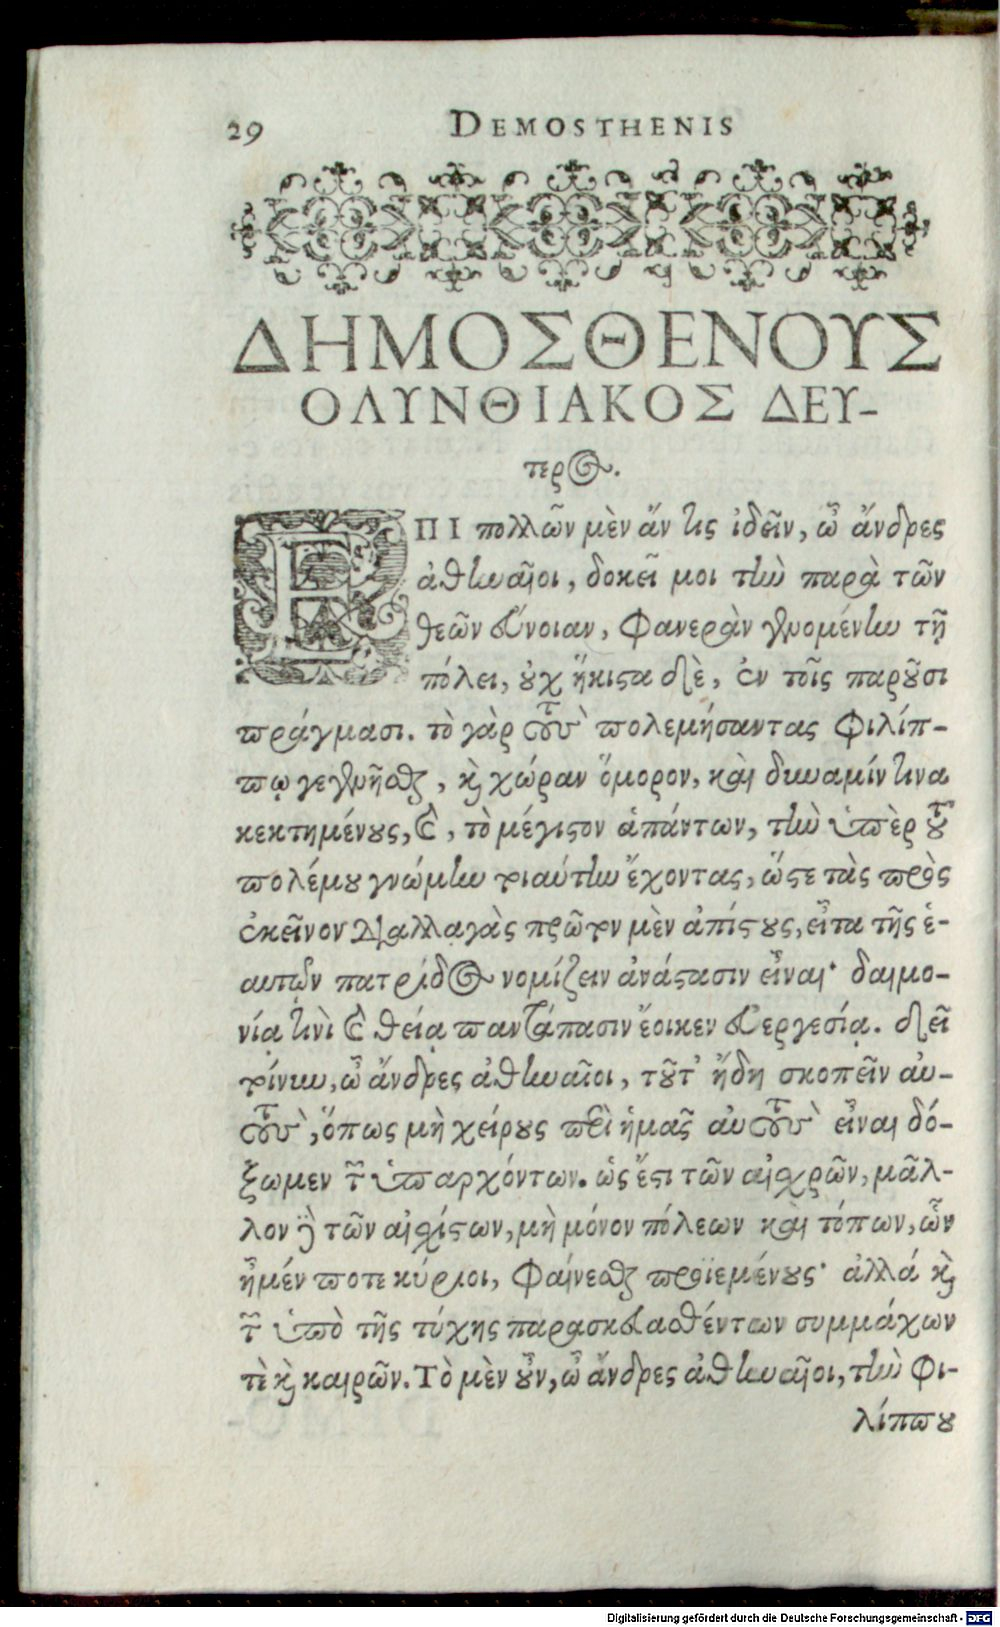 29 DEMOSTHENIS
ΔΗΜΟΣΘΕΝΟΥΣ
ΟΛΥΝΘΙΑΚΟΣ ΔΕΥ-
τερος.
ΕΠΙ πολλῶν μὲν ἄν τις ἰδεῖν, ὦ ἄνδρες
ἀθηναῖοι, δοκεῖ μοι τὴν παρὰ τῶν
θεῶν εὔνοιαν, φανερὰν γενομένην τῇ
πόλει, οὐχ ἥκιστα δὲ, ἐν τοῖς παροῦσι
πράγμασι. τὸ γὰρ τοὺς πολεμήσαντας Φιλίπ-
πῳ γεγενῆσθαι, καὶ χώραν ὅμορον, καὶ δυναμίν τινα
κεκτημένους, καὶ, τὸ μέγιστον ἁπάντων, τὴν ὑπὲρ τοῦ
πολέμου γνώμην τοιαύτην ἔχοντας, ὥστε τὰς πρὸς
ἐκεῖνον διαλλαγὰς πρῶτον μὲν ἀπίστους, εἶτα τῆς ἑ-
αυτῶν πατρίδος νομίζειν ἀνάστασιν εἶναι· δαιμο-
νίᾳ τινὶ καὶ θείᾳ παντάπασιν ἔοικεν εὐεργεσίᾳ. δεῖ
τοίνυν, ὦ ἄνδρες ἀθηναῖοι, τοῦτ' ἤδη σκοπεῖν αὐ-
τοὺς, ὅπως μὴ χείρους περὶ ἡμᾶς αὐτοὺς εἶναι δό-
ξωμεν τῶν ὑπαρχόντων. ὡς ἔστι τῶν αἰσχρῶν, μᾶλ-
λον δὲ τῶν αἰσχίστων, μὴ μόνον πόλεων καὶ τόπων, ὧν
ἦμέν ποτε κύριοι, φαίνεσθαι προϊεμένους· ἀλλά καὶ
τῶν ὑπὸ τῆς τύχης παρασκευασθέντων συμμάχων
τὲ καὶ καιρῶν. Τὸ μὲν οὖν, ὦ ἄνδρες ἀθηναῖοι, τὴν Φι-
λίππου
Digitalisierung gefördert durch die Deutsche Forschungsgemeinschaft - DFG